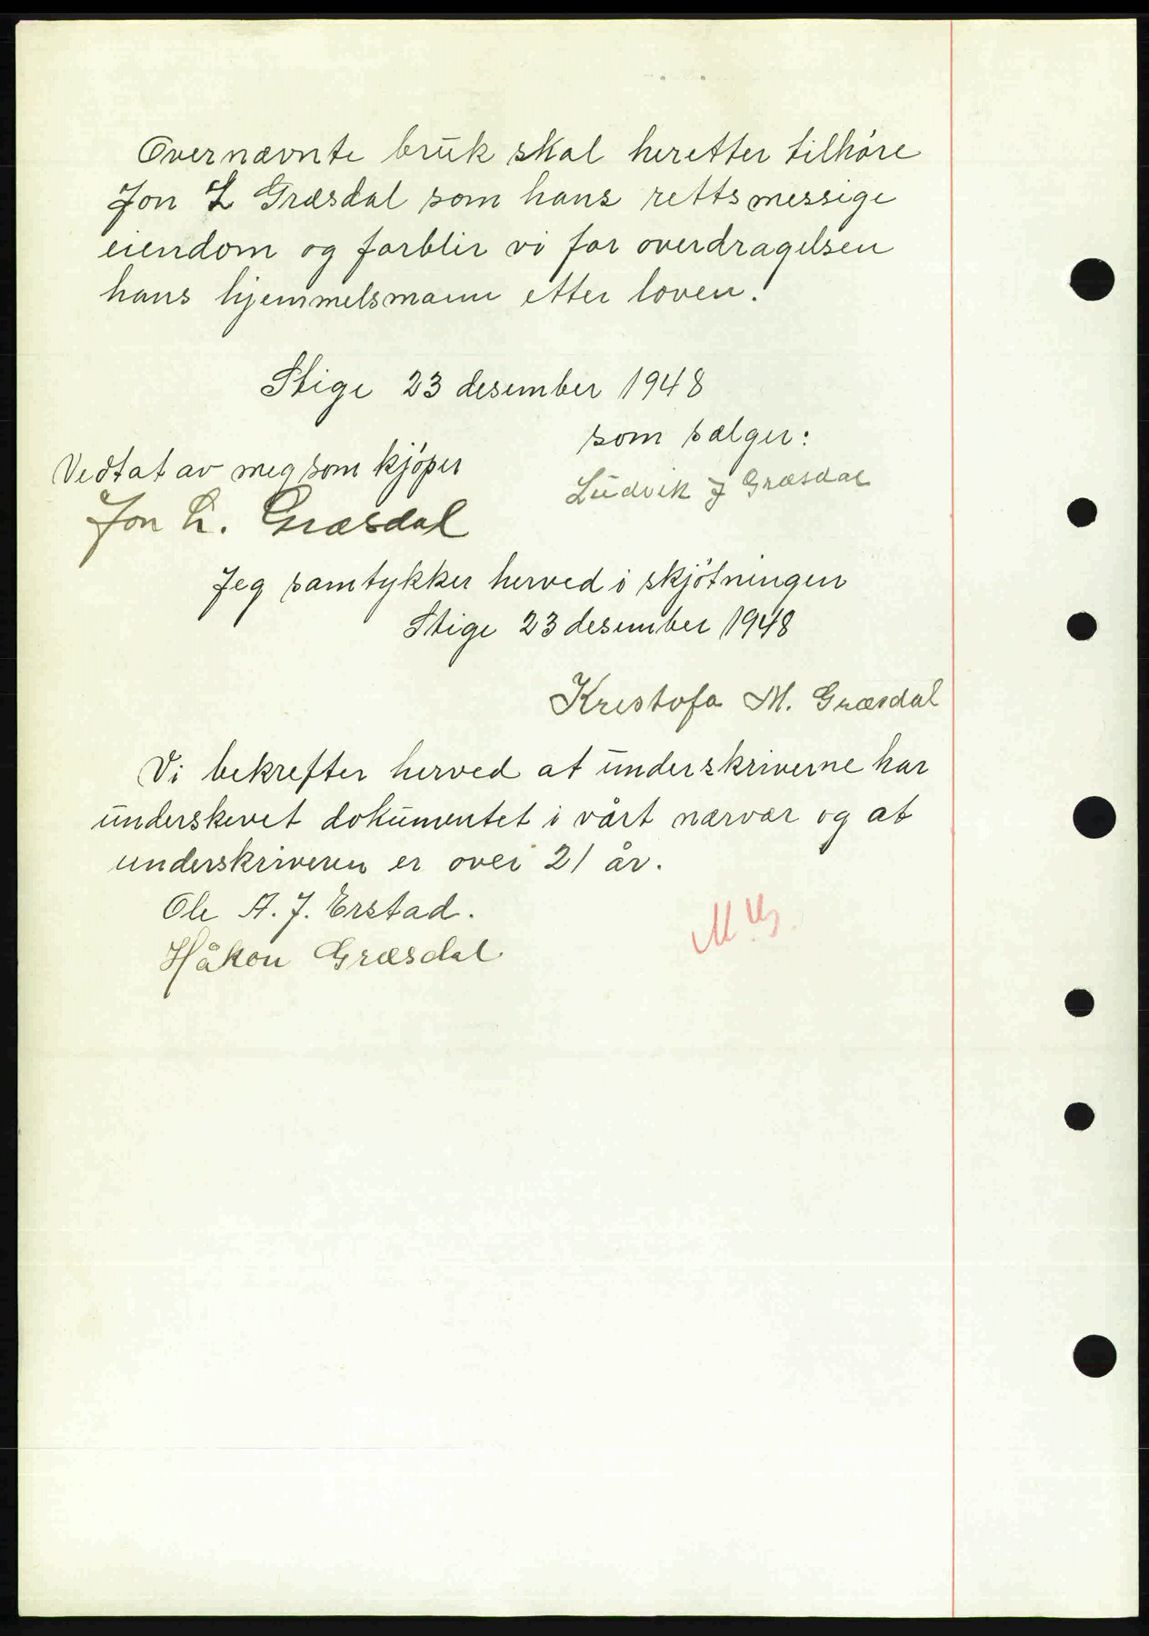 Overnævnte bruk skal heretter tilhøre
Jon L Græsdal som hans rettsmessige
eiendom og forblir vi for overdragelsen
hans hjemmelsmann etter loven.
Stige 23 desember 1948
som sælger:
Ludvik J Græsdal
Vedtat av meg som kjøper
Jon L. Græsdal
Jeg samtykker herved i skjøtningen
Stige 23 desember 1948
Kristofa M. Græsdal
Vi bekrefter herved at underskriverne har
underskevet dokumentet i vårt nærvær og at
underskriveren er over 21 år.
Ole A. J. Erstad.
Håkon Græsdal